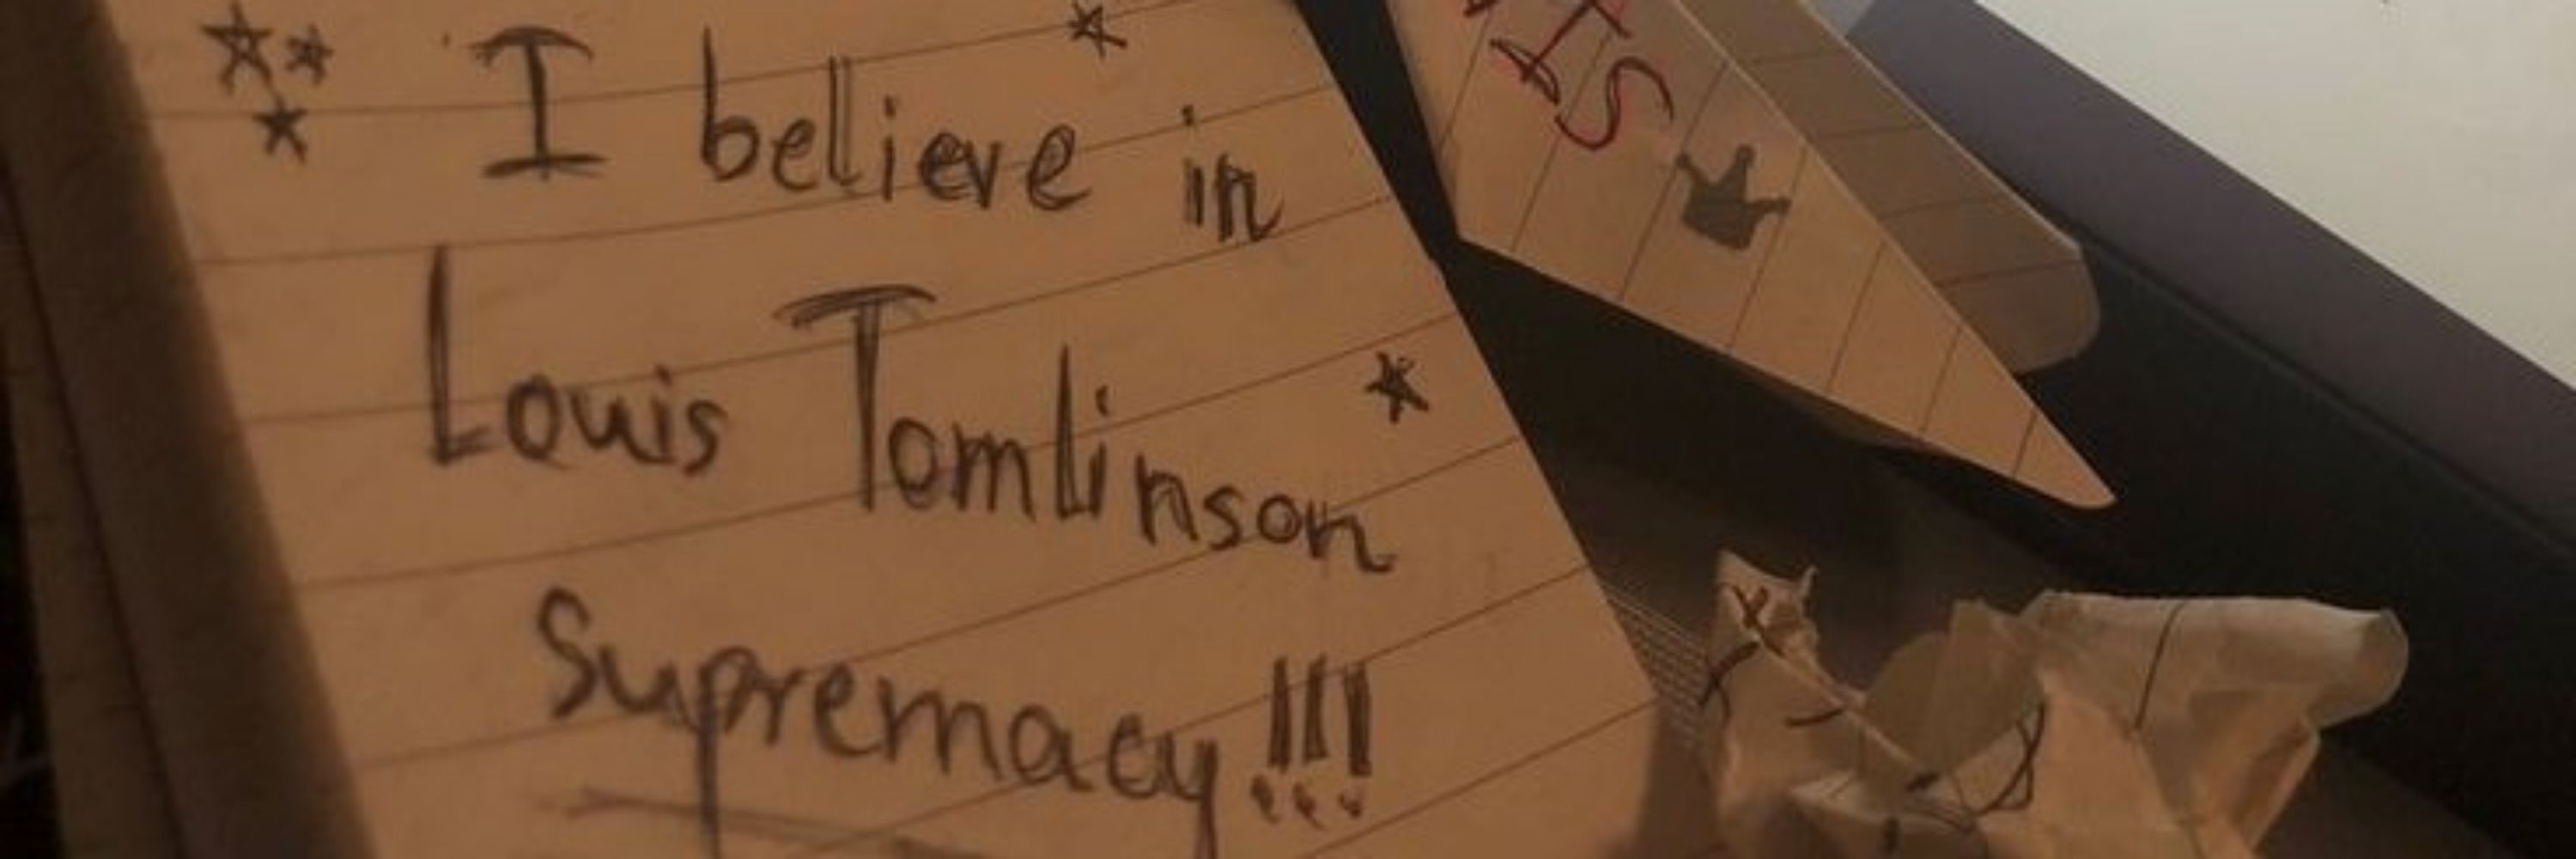 I believe in
Louis Tomlinson
Supremacy!!!
IS